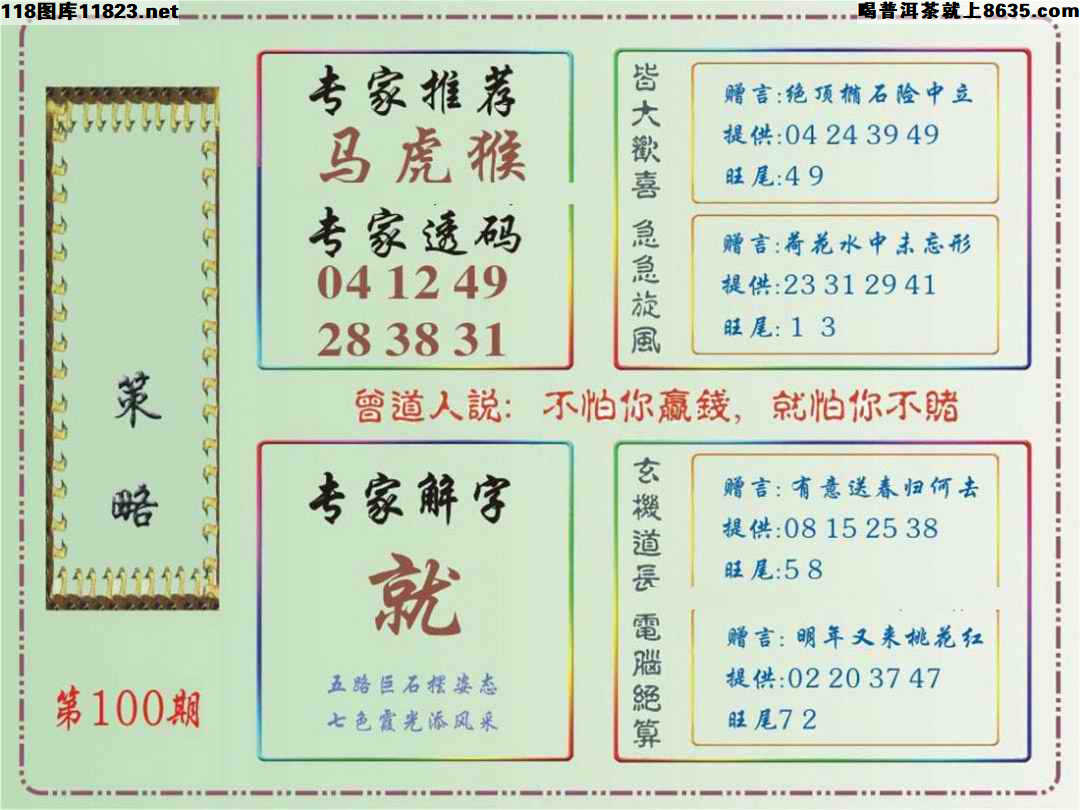 118图库11823.net
喝普洱茶就上8635.com
策略
第100期
专家推荐
马虎猴
专家透码
04 12 49
28 38 31
皆大歡喜
赠言:绝顶梢石险中立
提供:04 24 39 49
旺尾:4 9
急急旋風
赠言:荷花水中未忘形
提供:23 31 29 41
旺尾: 1 3
曾道人説: 不怕你贏錢, 就怕你不賭
专家解字
就
五路巨石摆姿态
七色霞光添风采
玄機道長
赠言: 有意送春归何去
提供:08 15 25 38
旺尾:5 8
電腦絕算
赠言: 明年又来桃花红
提供:02 20 37 47
旺尾7 2